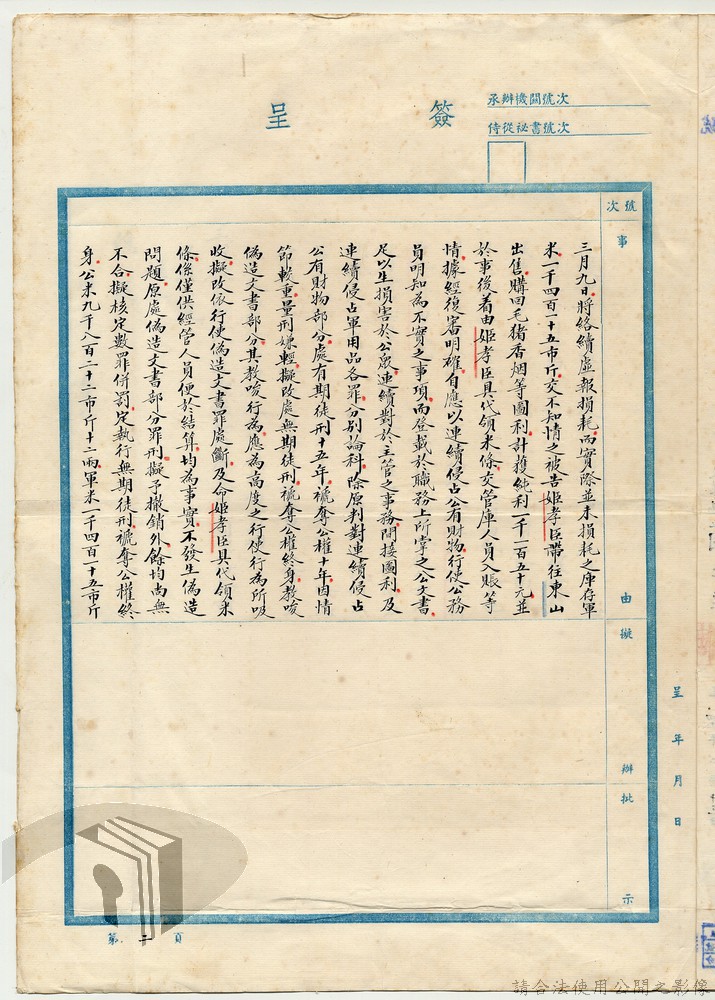 簽呈
承辦機關號次
侍從祕書號次
號次
事由
擬辦
批示
呈 年 月 日
三月九日將絡續虛報損耗而實際並未損耗之庫存軍
米一千四百一十五市斤交不知情之被告姬孝臣帶往東山
出售購回毛猪香烟等圖利計獲純利一千一百五十元並
於事後着由姬孝臣具代領米條交管庫人員入賬等
情據經復審明確自應以連續侵占公有財物行使公務
員明知為不實之事項而登載於職務上所掌之公文書
足以生損害於公眾連續對於主管之事務間接圖利及
連續侵占軍用品各罪分別論科除原判對連續侵占
公有財物部分處有期徒刑十五年褫奪公權十年因情
節較重量刑嫌輕擬改處無期徒刑褫奪公權終身教唆
偽造文書部分其教唆行為應為高度之行使行為所吸
收擬改依行使偽造文書罪處斷及命姬孝臣具代領米
條係僅供經管人員便於結算均為事實不發生偽造
問題原處偽造文書部分罪刑擬予撤銷外餘均尚無
不合擬核定數罪併罰定執行無期徒刑褫奪公權終
身公米九千八百二十二市斤十二兩軍米一千四百一十五市斤
第二頁
請合法使用公開之影像